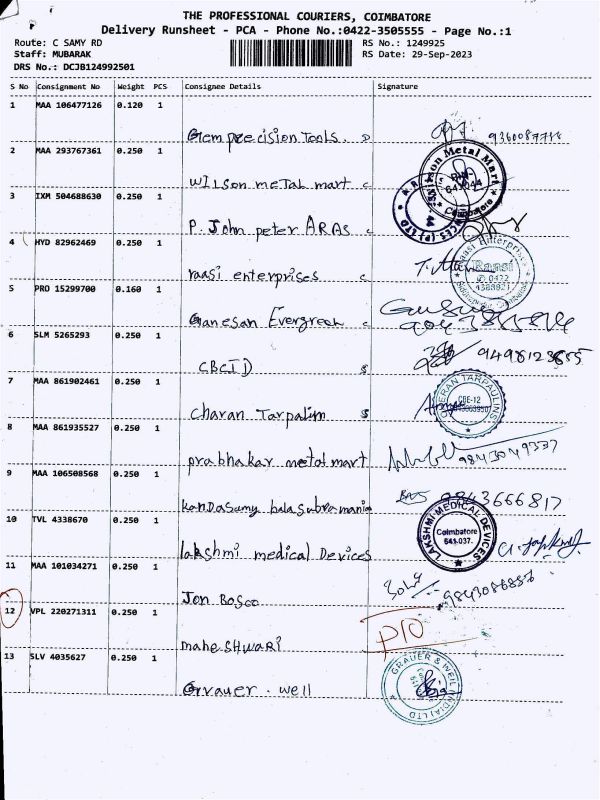 THE PROFESSIONAL COURIERS, COIMBATORE
Delivery Runsheet - PCA - Phone No.:0422-3505555 - Page No.:1
Route: C SAMY RD RS No.: 1249925
Staff: MUBARAK RS Date: 29-Sep-2023
DRS No.: DCJB124992501
S No Consignment No Weight PCS Consignee Details Signature
1 MAA 106477126 0.120 1
Gem precision Tools.
2 MAA 293767361 0.250 1
Wilson metal mart
3 IXM 504688630 0.250 1
P. John peter ARAS
4 HYD 82962469 0.250 1
raasi enterprises
Raasi
5 PRO 15299700 0.160 1
Ganesan Evergreen
6 SLM 5265293 0.250 1
CBCID
7 MAA 861902461 0.250 1
Charan Tarpalim
CBE-12
8 MAA 861935527 0.250 1
prabhakar metal mart 9843049337
9 MAA 106508568 0.250 1
kanDasamy balasubramania 9843666817
10 TVL 4338670 0.250 1
lakshmi medical Devices
LAKSHMI MEDICAL DEVICES
Coimbatore
641-037.
11 MAA 101034271 0.250 1
Jon Bosco
12 VPL 220271311 0.250 1
maheSHwari
13 SLV 4035627 0.250 1
Grauer . well
GRAUER & WEIL (INDIA) LTD